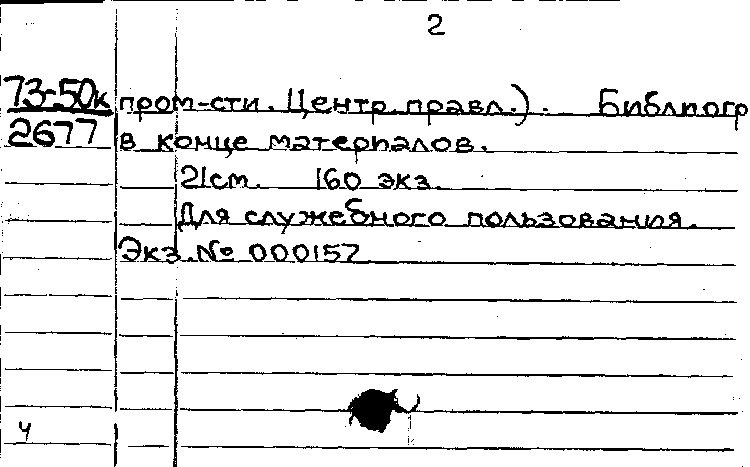 2
73-50к пром-сти. Центр. правл.). Библиогр
2677 в конце материалов.
21см. 160 экз.
Для служебного пользования.
Экз. № 000157
ч